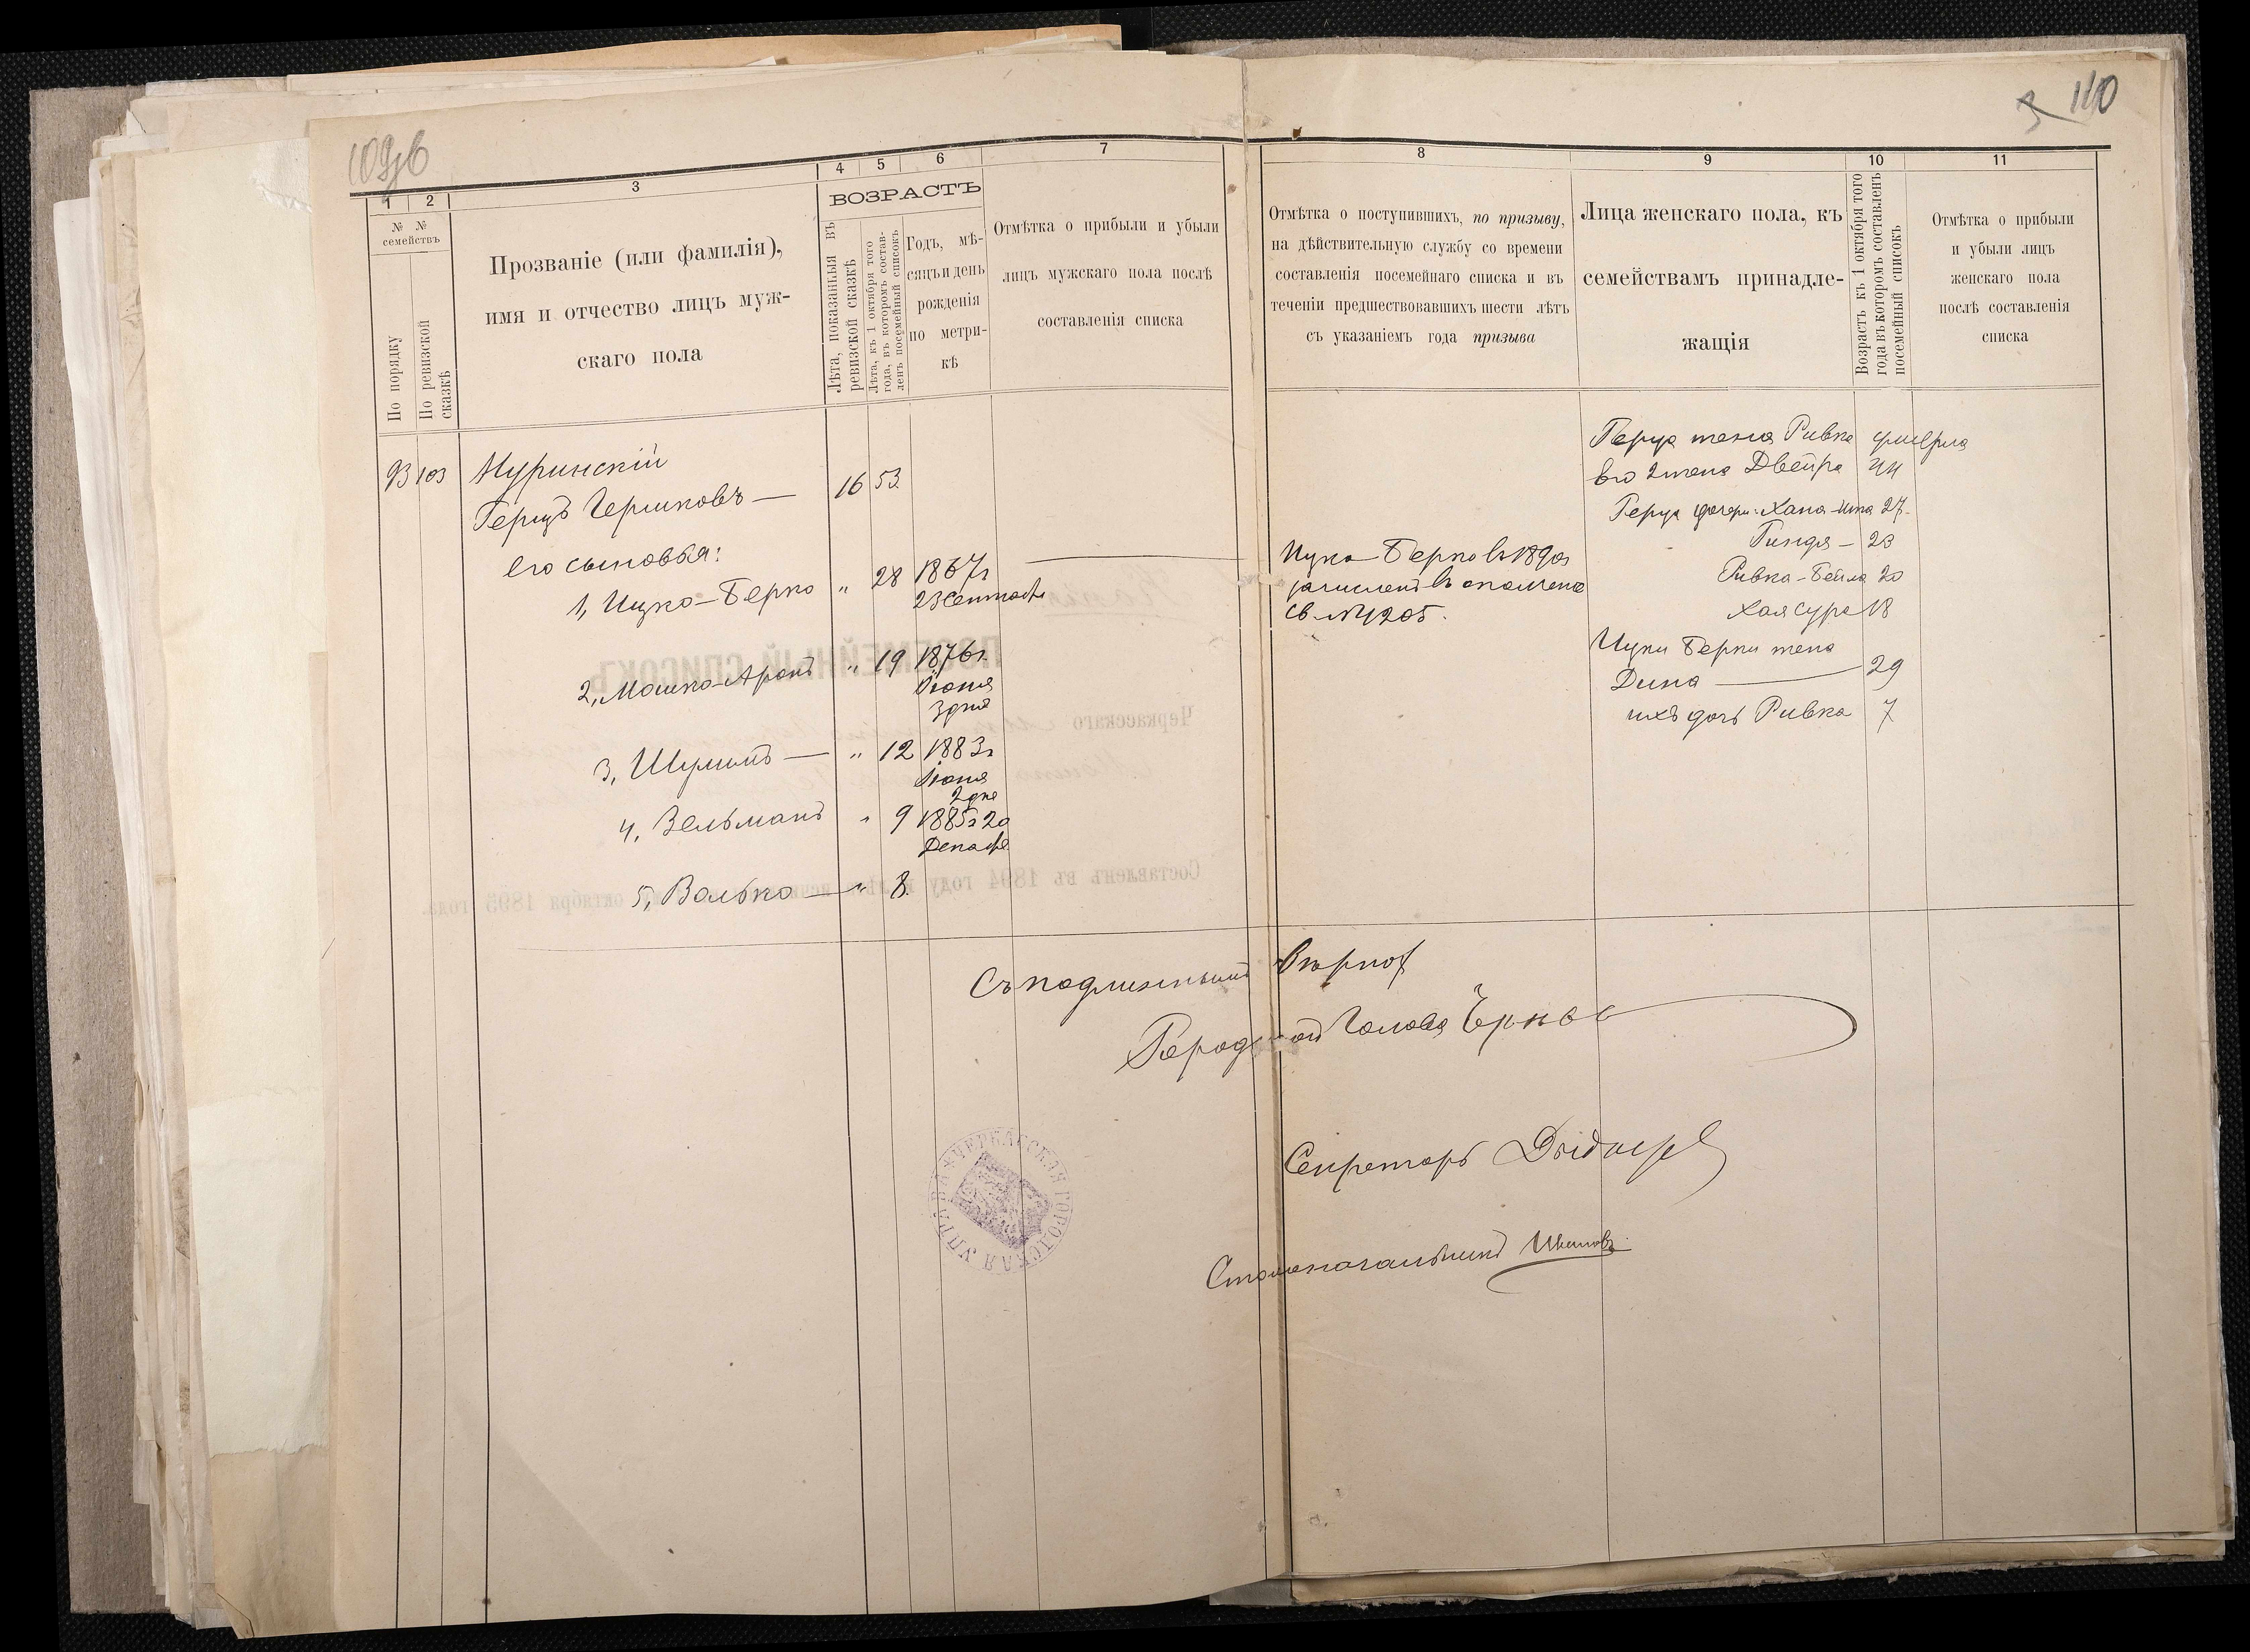 109об
110
1
2
3
4
5
6
7
8
9
10
11
№ №
семействъ
По порядку
По ревизской
сказкѣ
Прозваніе (или фамилія),
имя и отчество лицъ муж-
скаго пола
ВОЗРАСТЪ
Лѣта, показанныя въ
ревизской сказкѣ
Лѣта, къ 1 октября того
года, въ которомъ состав-
ленъ посемейный списокъ
Годъ, мѣ-
сяцъ и день
рожденія
по метри-
кѣ
Отмѣтка о прибыли и убыли
лицъ мужскаго пола послѣ
составленія списка
Отмѣтка о поступившихъ, по призыву,
на дѣйствительную службу со времени
составленія посемейнаго списка и въ
теченіи предшествовавшихъ шести лѣтъ
съ указаніемъ года призыва
Лица женскаго пола, къ
семействамъ принадле-
жащія
Возрастъ къ 1 октября того
года въ которомъ составленъ
посемейный списокъ
Отмѣтка о прибыли
и убыли лицъ
женскаго пола
послѣ составленія
списка
93 103
Муринскій
Герцъ Гершковъ — 16 53.
его сыновья:
1, Ицко-Берко " 28 1867г
23 Сентября
2, Мошко-Аронъ " 19 1876г.
Іюня
3 дня
3, Шулимъ — " 12 1883г
Іюня
2 дня
4, Зельманъ " 9 1885г 20
Декабря
5, Волько — " 8.
Ицко-Берко въ 1890г
зачисленъ въ ополчение
св. № 1205.
Герца жена Ривка умерла
его 2 жена Двейра 44
Герца дочери: Хана-Ита 27.
Гиндя — 23
Ривка-Бейла 20
Хая Сура 18
Ицки Берки жена
Дина — 29
ихъ дочь Ривка 7
Съ подлиннымъ Вѣрно
Городской Голова
Секретарь
Столоначальникъ Ивановъ
ЧЕРКАССКАЯ ГОРОДСКАЯ УПРАВА
ПОСЕМЕЙНЫЙ СПИСОКЪ
Черкасскаго
Составленъ въ 1894 году
октября 1895 года.